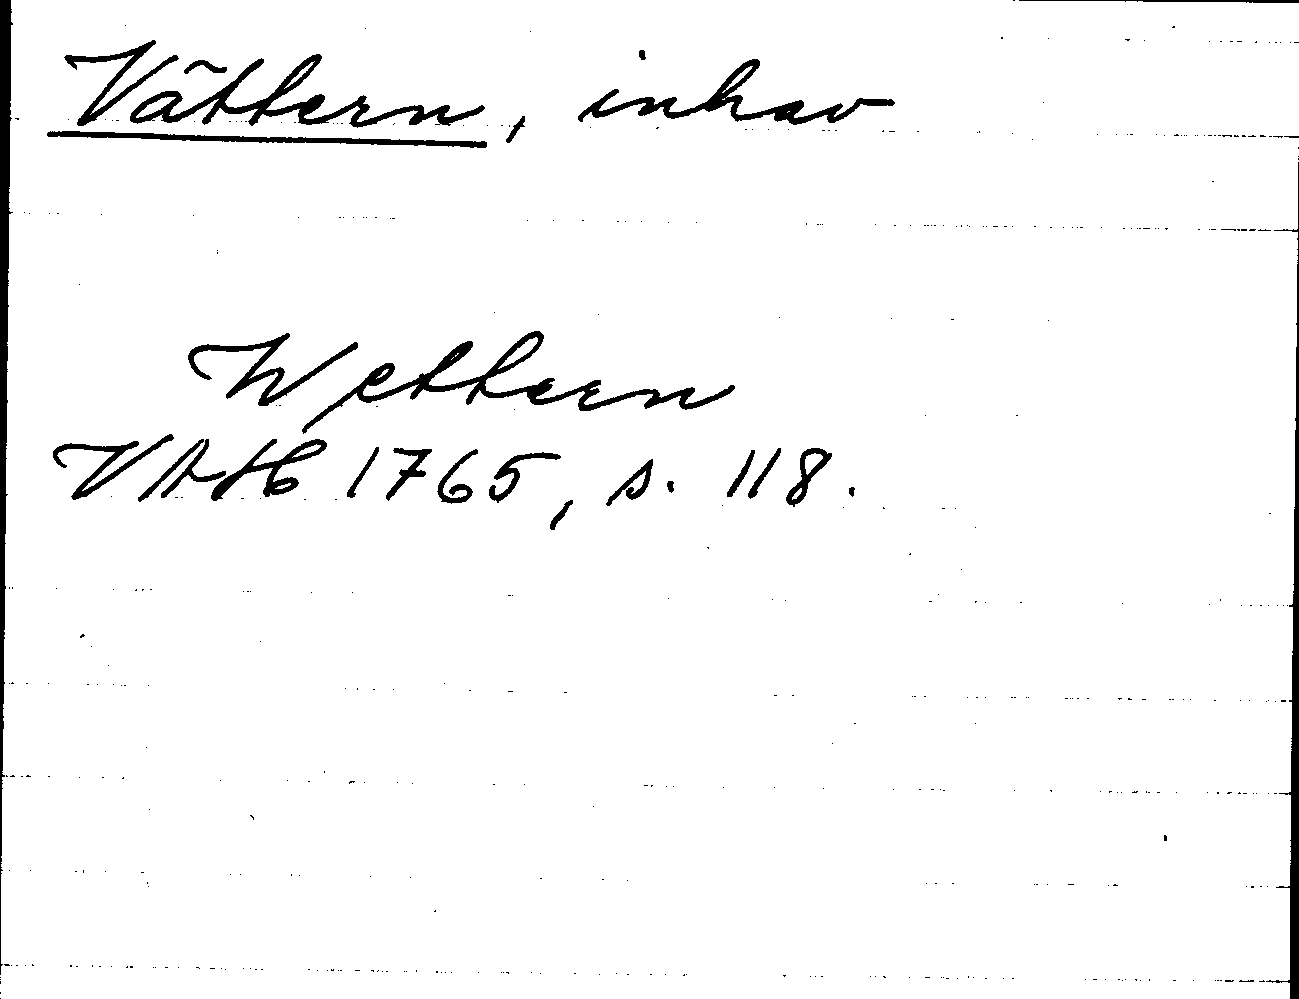 Vättern, inhav
Wettern
VAH 1765, s. 118.